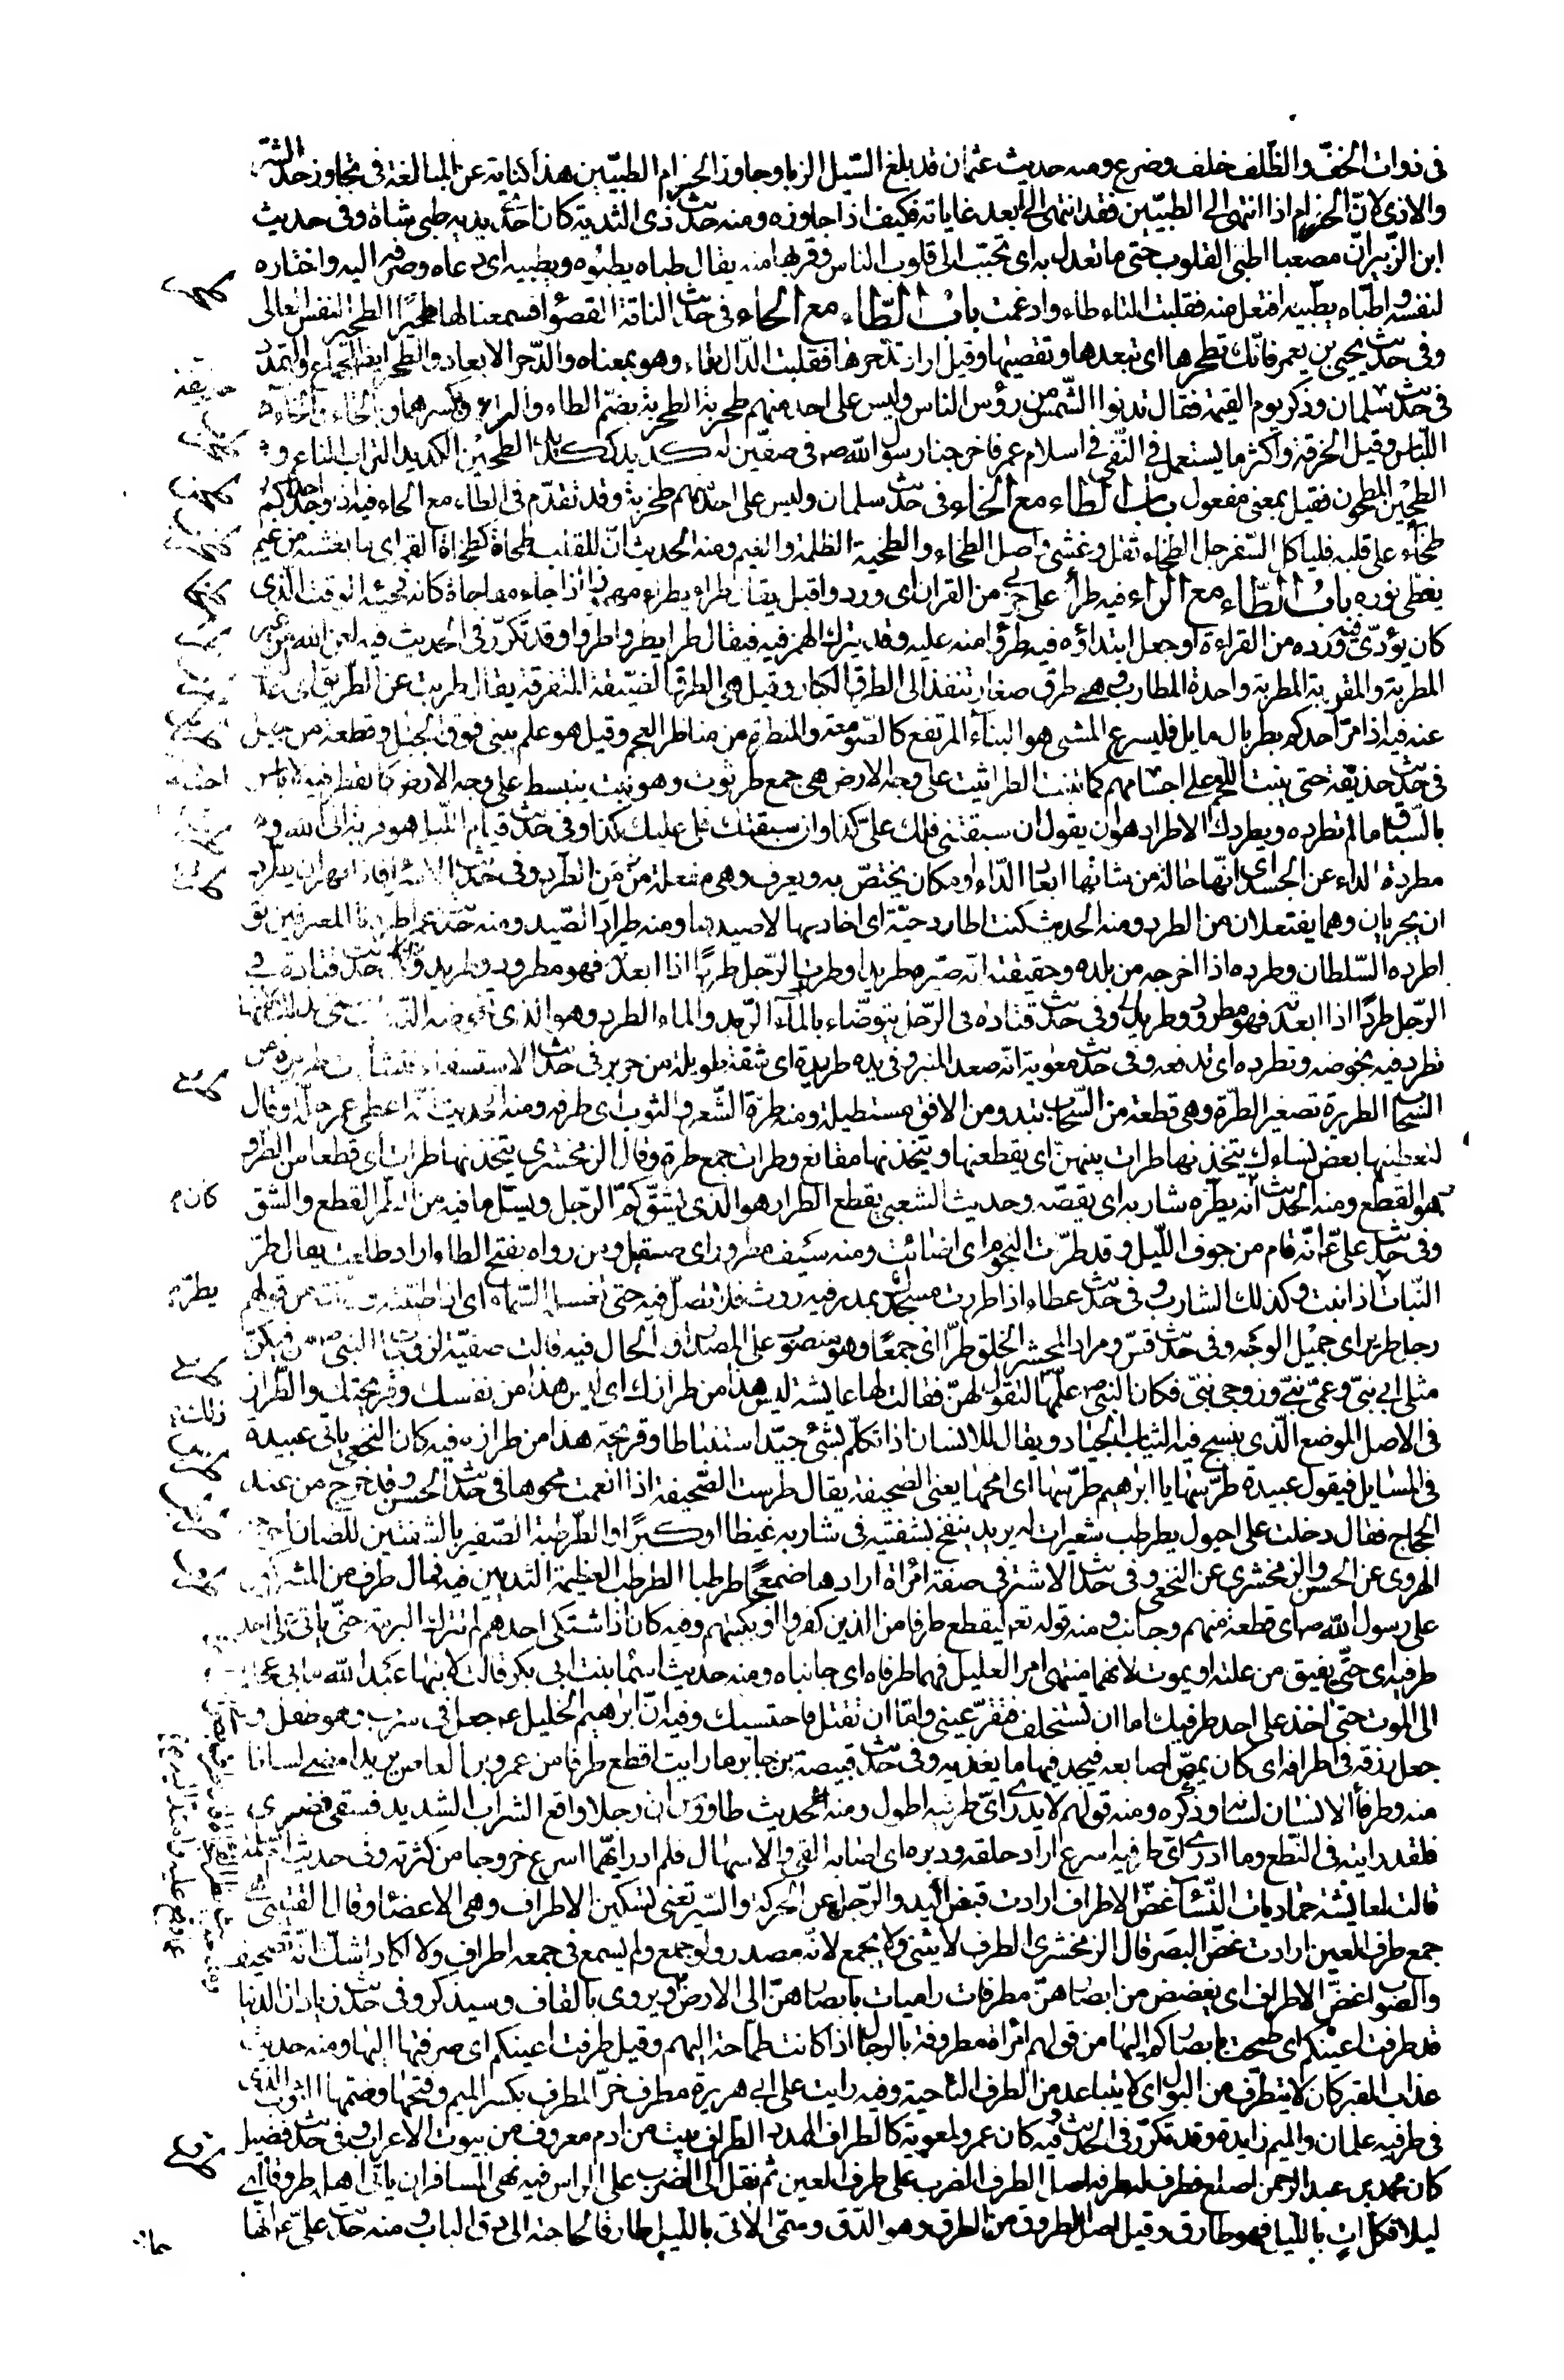 فى ذوات الخفّ والظّلف خلف وضرع ومنه حديث عثمان قد بلغ السّيل الزبا وجاوز الحزام الطبيّين هذا كناية عن المبالغة فى تجاوز حدّ الشرّ
والاذى لانّ الحزام اذا انتهى الى الطبيّين فقد انتهى الى ابعد غاياته فكيف اذا جاوزه ومنه حديث ذى الثدية كان احدى يديه طبى شاة وفى حديث
ابن الزّبير انّ مصعبا اطبى القلوب حتى ما تعدل به اى تحبّب الى قلوب الناس وقربها منه يقال طباه يطبوه ويطبيه اى دعاه وصرفه اليه واختاره
لنفسه واطّباه يطّبيه افتعل منه فقلبت التاء طاء وادغمت باب الطّاء مع الحاء فى حديث الناقة القصوا فسمعنا لها طحيرًا الطحير النفس العالى
وفى حديث يحيى بن يعمر فانّك تطحرها اى تبعدها وتقصيها وقيل اراد تدحرها فقلبت الدّال طاء وهو بمعناه والدّحر الابعاد والطحر ايضا الجماع والتمدّد
فى حديث سلمان وذكر يوم القيمة فقال تدنوا الشّمس من رؤس الناس وليس على احد منهم طحربة الطحربة بضمّ الطاء والراء وكسرهما وبالحاء والخاء
اللّباس وقيل الخرقة واكثر ما يستعمل فى النّفى فى اسلام عمر فاخرجنا رسول الله ص فى صفّين له كديد ككديد الطحين الكديد التراب الناعم و
الطحين المطحون فعيل بمعنى مفعول باب الطاء مع الخاء فى حديث سلمان وليس على احد منهم طخربة وقد تقدّم فى الطاء مع الحاء فيه اذا وجد احدكم
طخاء على قلبه فلياكل السّفرجل الطخاء ثقل وغشى واصل الطخاء والطخية الظلمة والغيم ومنه الحديث انّ للقلب طخاة كطخاة القمر اى ما يغشيه من غيم
يغطّى نوره باب الطّاء مع الراء فيه طرأ علىّ حزبى من القران اى ورد واقبل يقال طرا يطرء مهموزا اذا جاء مفاجاة كانه فجئه الوقت الّذى
كان يؤدّى فيه ورده من القراءة او جعل ابتداؤه فيه طرؤا منه عليه وقد يترك الهمز فيه فيقال طرا يطرو اطروا وقد تكرّر فى الحديث فيه لعن الله من غير
المطربة والمقربة المطربة واحدة المطارب وهى طرق صغار تنفذ الى الطرق الكبار وقيل هى الطرق الضيّقة المتفرقة يقال طربت عن الطريق اى عدلت
عنه فيه اذا مرّ احدكم بطربال مايل فليسرع المشى هو البناء المرتفع كالصّومعة والمنظرة من مناظر العجم وقيل هو علم يبنى فوق الجبل او قطعة من جبل
فى حديث حذيفة حتى ينبت اللحم على اجسامهم كما تنبت الطراثيث على وجه الارض هى جمع طرثوث وهو نبت ينبسط على وجه الارض كالفطر فيه لا باس
بالسّباق ما لم تطرده ويطردك الاطراد هو ان يقول ان سبقتنى فلك علىّ كذا وان سبقتك فلى عليك كذا وفى حديث قيام اللّيل هو قربة الى الله و
مطردة الداء عن الجسد اى انّها حالة من شانها ابعاد الدّاء او مكان يختصّ به ويعرف وهى مفعلة من الطرد وفى حديث الاسراء فاذا نهران يطّردان
ان يجريان وهما يفتعلان من الطرد ومنه الحديث كنت اطارد حيّة اى اخادعها لاصيدها ومنه طراد الصّيد ومنه حديث عمر اطردنا المعترفين يق
اطرده السّلطان وطرده اذا اخرجه من بلده وحقيقته انه صيّره طريدا وطردت الرّجل طردًا اذا ابعدته فهو مطرود وطريد وفى حديث قتادة فى
الرّجل طردًا اذا ابعدته فهو مطرود وطريد وفى حديث قتادة فى الرّجل يتوضّاء بالماء الرّمد والماء الطرد وهو الذى تخوضه الدّوابّ سمى بذلك لانها
تطرد فيه بخوضه وتطرده اى تدفعه وفى حديث معوية انّه صعد المنبر وفى يده طريدة اى شقة طويلة من حرير فى حديث الاستسقاء فنشأت طريرة من
السّحاب الطريرة تصغير الطرّة وهى قطعة من السّحاب تبدو من الافق مستطيلة ومنه طرّة الشّعر والثوب اى طرفه ومنه الحديث انّه اعطى عمر حلّة وقال
لتعطينها بعض نساءك يتخذنها طرات بينهنّ اى يقطعنها ويتخذنها مقانع وطرات جمع طرة وقال الزمخشرى يتخذنها طرات اى قطعا من الطرّ و
هو القطع ومنه الحديث انّه كان يطرّ شاربه اى يقصّه وحديث الشعبى يقطع الطرار هو الذى يشقّ كمّ الرّجل ويسلّ ما فيه من الطرّ القطع والشق
وفى حديث علىّ ع انّه قام من جوف اللّيل وقد طرّت النجوم اى اضائت ومنه سيف مطرور اى صقيل ومن رواه بفتح الطاء اراد طلعت يقال طرّ
النّبات اذا نبت وكذلك الشارب وفى حديث عطاء اذا طررت مسجدك بمدر فيه روث فلا تصلّ فيه حتى تغسله السّماء اى اذا طيّنته وزيّنته من قولهم
رجل طرير اى جميل الوجه وفى حديث قسّ ومراد المحشر الخلق طرّا اى جمعًا وهو منصوب على المصدر او الحال فيه قالت صفيّة لزوجات النبى ص من فيكنّ
مثلى ابى نبىّ وعمّى نبىّ وزوجى نبىّ فكان النبى ص علّمها لتقول لهنّ فقالت لها عايشة ليس هذا من طرازك اى ليس هذا من نفسك وقريحتك والطّراز
فى الاصل الموضع الّذى ينسج فيه الثياب الجياد ويقال للانسان اذا تكلّم بشئ جيّد استنباطا وقريحة هذا من طرازه فيه كان النخعى ياتى عبيدة
فى المسايل فيقول عبيدة طرّسها يا ابرهيم طرّسها اى امحها يعنى الصّحيفة يقال طرست الصّحيفة اذا انعمت محوها فى حديث الحسن وقد خرج من عند
الحجاج فقال دخلت على احول يطرطب شعيرات له يريد ينفخ بشفتيه فى شاربه غيظا او كبرًا والطّرطبة الصّفير بالشفتين للضان
الهروى عن الحسن والزمخشرى عن النخعى وفى حديث الاشتر فى صفة امراة ارادها ضمعجًا طرطبا الطرطب العظيمة الثديين فيه فمال طرف من المشركين
على رسول الله ص اى قطعة منهم وجانب ومنه قوله تعالى ليقطع طرفا من الذين كفروا او يكبتهم وفيه كان اذا اشتكى احدهم لم تنزل البرمة حتّى ياتى على احد
طرفيه اى حتّى يفيق من علته او يموت لانهما منتهى امر العليل فهما طرفاه اى جانباه ومنه حديث اسما بنت ابى بكر قالت لابنها عبد الله ما بى عجلة
الى الموت حتى اخذ على احد طرفيك اما ان تستخلف فتقرّ عينى وامّا ان تقتل فاحتسبك وفيه انّ ابرهيم الخليل ع جعل فى سرب وهو طفل و
جعل رزقه فى اطرافه اى كان يمصّ اصابعه فيجد فيها ما يغذيه وفى حديث قبيصة بن جابر ما رايت اقطع طرفا من عمرو بن العاص يريد امضى لسانا
منه وطرفا الانسان لسانه وذكره ومنه قولهم لا يدرى اىّ طرفيه اطول ومنه الحديث طاووس ان رجلا واقع الشراب الشديد فسقى فضرى
فلقد رايته فى النّطع وما ادرى اىّ طرفيه اسرع اراد حلقه ودبره اى اصابه القئ والاسهال فلم ادر ايّهما اسرع خروجا من كثرته وفى حديث ام سلمة
قالت لعايشة حماديات النّساء غضّ الاطراف ارادت قبض اليد والرّجل عن الحركة والسّير تعنى تسكين الاطراف وهى الاعضاء وقال القتيبى هى
جمع طرف العين ارادت غضّ البصر قال الزمخشرى الطرف لا يثنى ولا يجمع لانّه مصدر ولو جمع ولم يسمع فى جمعه اطراف ولا اكاد اشكّ انّه تصحيف
والصّواب غضّ الاطراف اى يغضضن من ابصارهنّ مطرقات راميات بابصارهنّ الى الارض ويروى بالقاف وسيذكر وفى حديث زياد ان الدنيا
قد طرفت اعينكم اى طمحت بابصاركم اليها من قولهم امراة مطروفة بالرجال اذا كانت طمّاحة اليهم وقيل طرفت اعينكم اى صرفتها اليها ومنه حديث
عذاب القبر كان لا يتطرّف من البول اى لا يتباعد من الطرف الناحية وفيه رايت على ابى هريرة مطرف خزّ المطرف بكسر الميم وفتحها وضمّها الثوب الذى
فى طرفيه علمان والميم زايدة وقد تكرّر فى الحديث وفيه كان عمرو لمعوية كالطراف الممدد الطراف بيت من ادم معروف من بيوت الاعراب وفى حديث فضيل
كان محمد بن عبد الرحمن اصلع فطرف له طرفة اصل الطرف الضرب على طرف العين ثم نقل الى الضرب على الراس فيه نهى المسافر ان ياتى اهله طروقا اى
ليلا فكل ات بالليل فهو طارق وقيل اصل الطروق من الطرق وهو الدّق وسمّى الاتى بالليل طارقا لحاجته الى دقّ الباب ومنه حديث علىّ ع انها